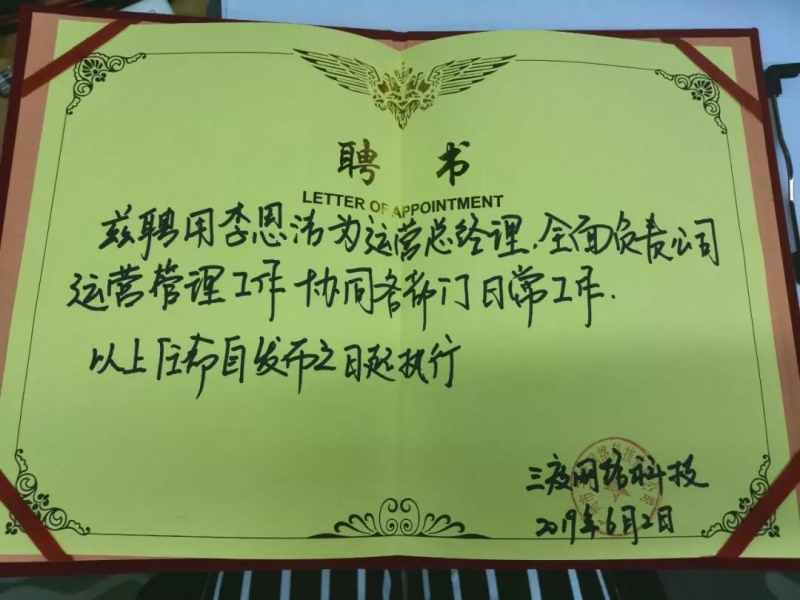 聘 书
LETTER OF APPOINTMENT
兹聘用李恩沛为运营总经理.全面负责公司
运营管理工作 协同各部门日常工作.
以上任命自发布之日起执行
三度网络科技
2019年6月2日